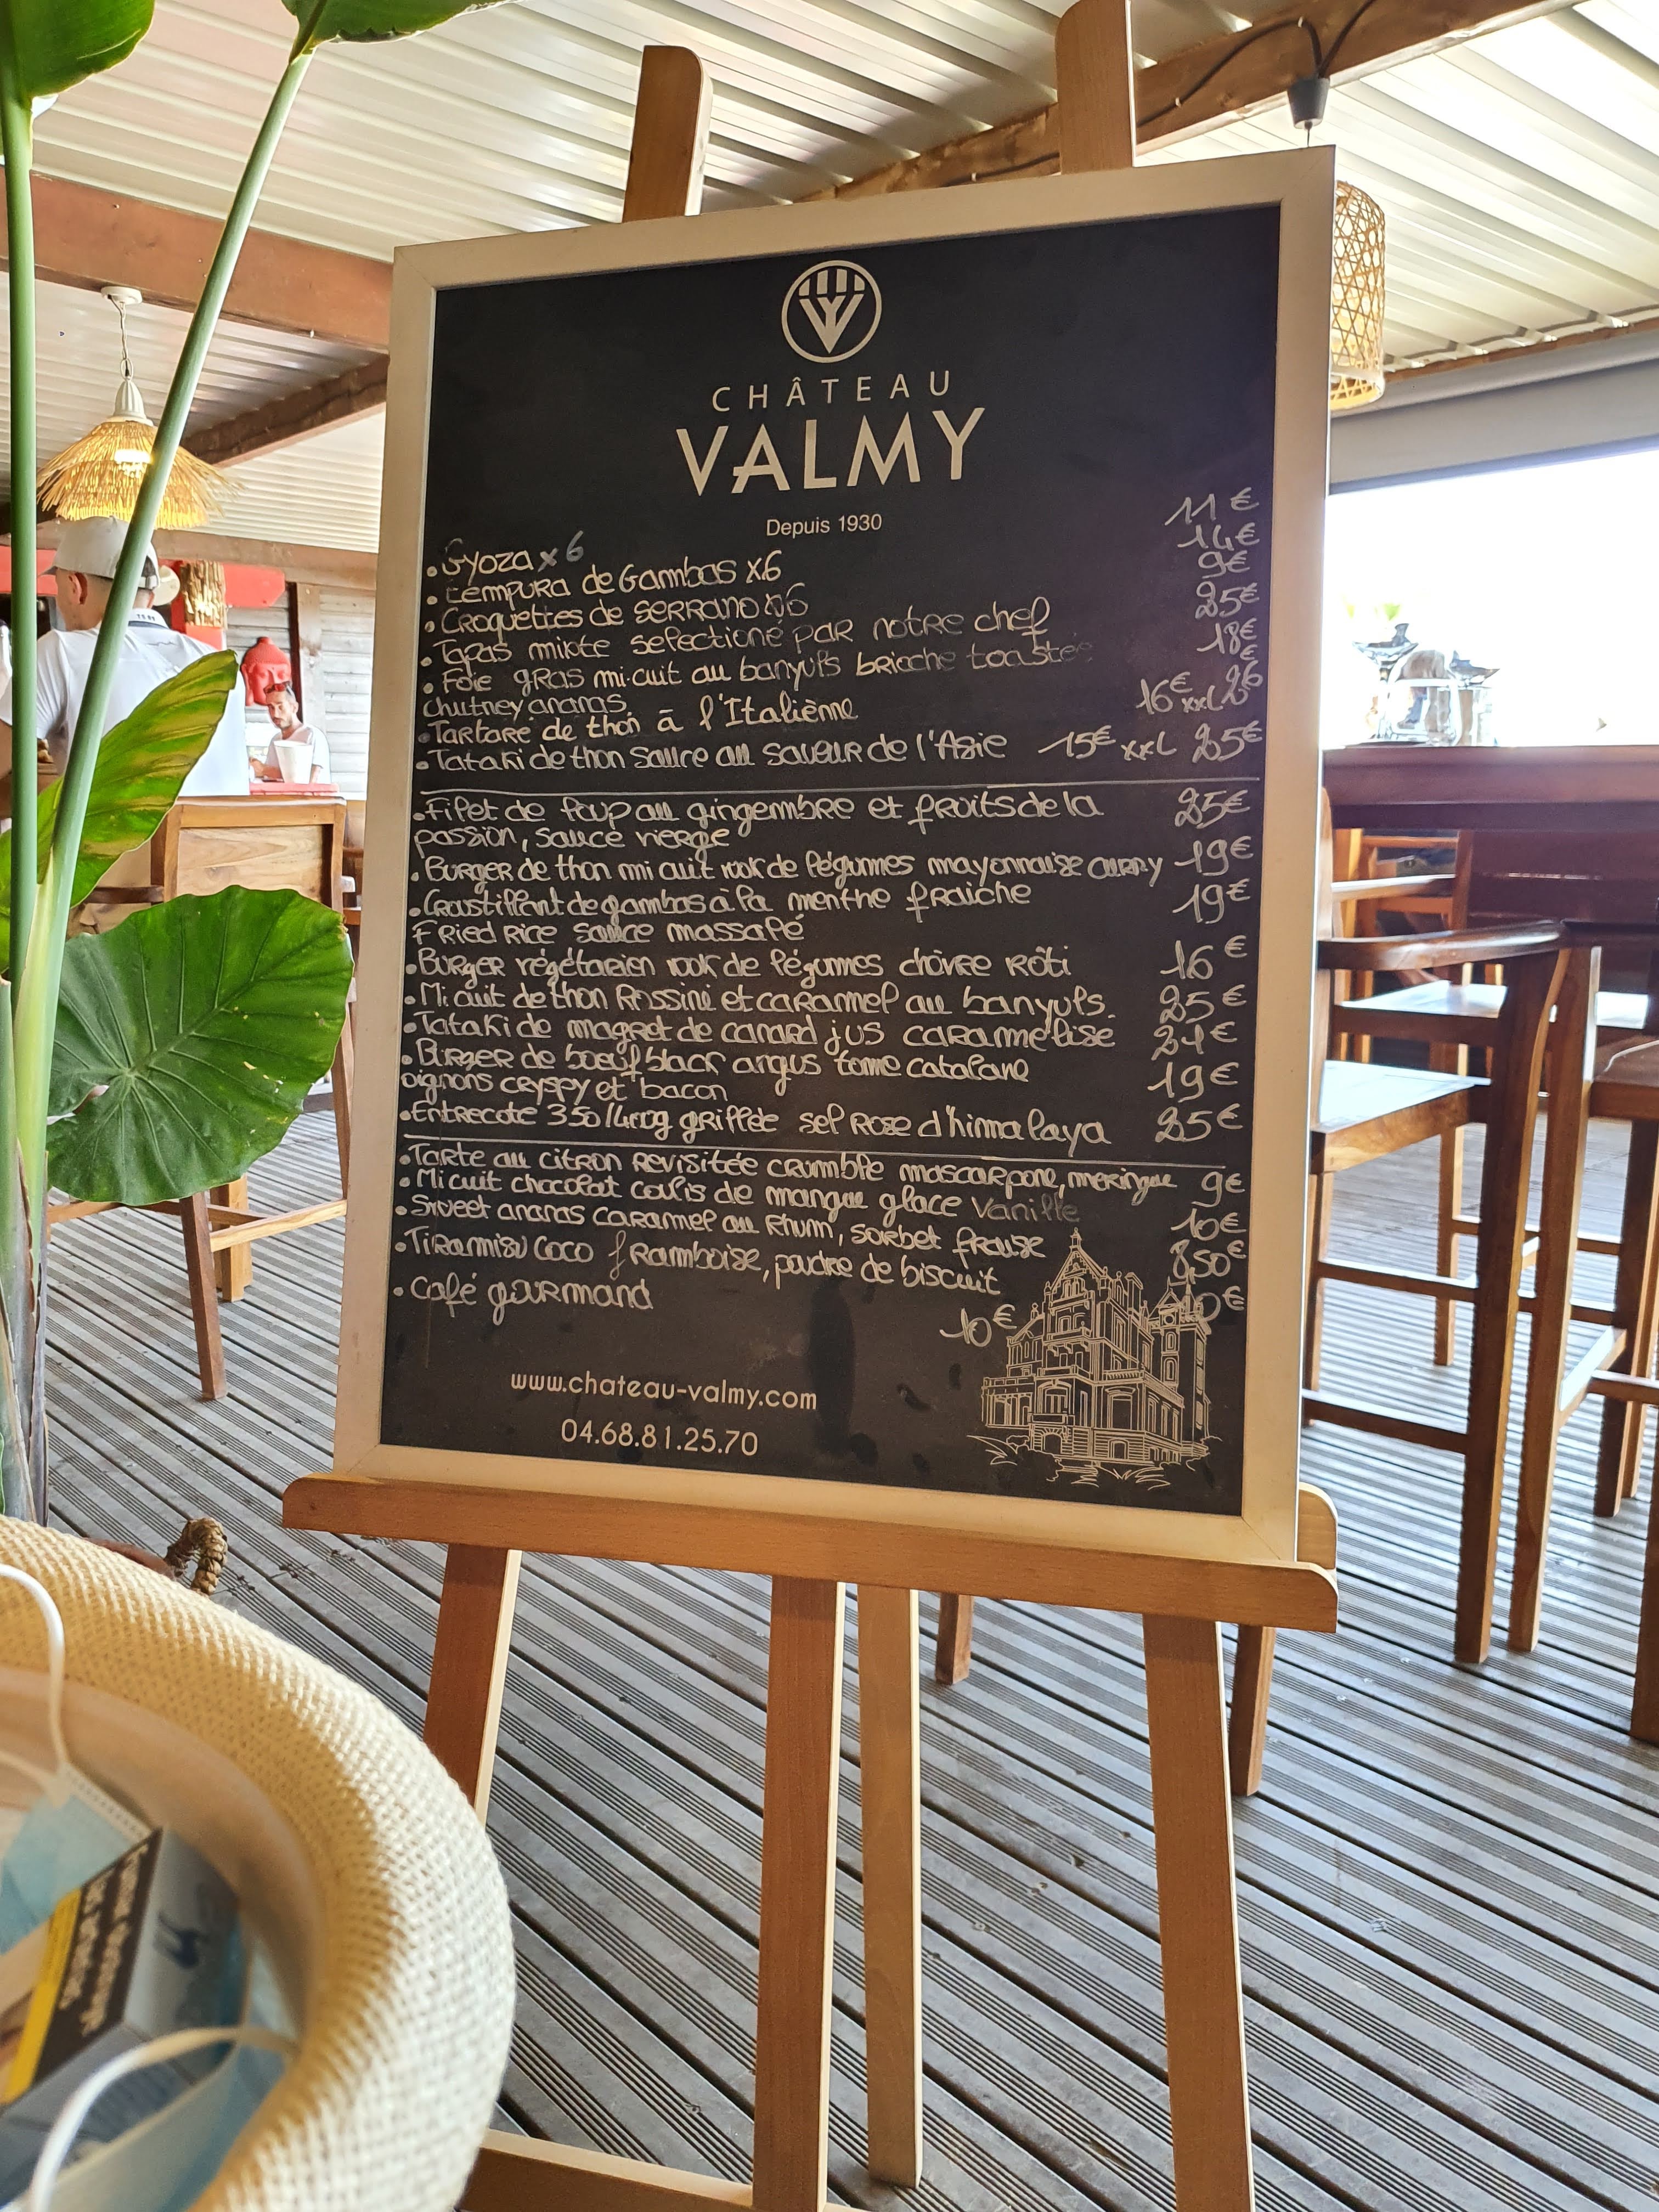 CHÂTEAU
VALMY
Depuis 1930
• Gyoza x 6 11€
• tempura de Gambas x6 14€
• Croquettes de serrano x6 9€
• Tapas mixte selectioné par notre chef 25€
• Foie gras mi-cuit au banyuls brioche toastée 18€
chutney ananas
• Tartare de thon à l'Italiènne 16€ xxL 26€
• Tataki de thon sauce au saveur de l'Asie 15€ xxL 25€
• Filet de loup au gingembre et fruits de la 25€
passion, sauce vierge
• Burger de thon mi cuit wok de légumes mayonnaise curry 19€
• Croustillant de gambas à la menthe fraiche 19€
Fried Rice sauce massalé
• Burger végétarien wok de légumes chèvre Rôti 16€
• Mi cuit de thon Rossini et caramel au banyuls. 25€
• Tataki de magret de canard jus caramelisé 21€
• Burger de boeuf black argus tome catalane 19€
oignons cryspy et bacon
• Entrecote 350/400g grillée sel Rose d'himalaya 25€
• Tarte au citron revisitée crumble mascarpone, meringue 9€
• Mi cuit chocolat coulis de mangue glace vanille 10€
• Sweet ananas caramel au Rhum, sorbet fraise 8,50€
• Tiramisu coco framboise, poudre de biscuit 10€
• Café gourmand 10€
www.chateau-valmy.com
04.68.81.25.70